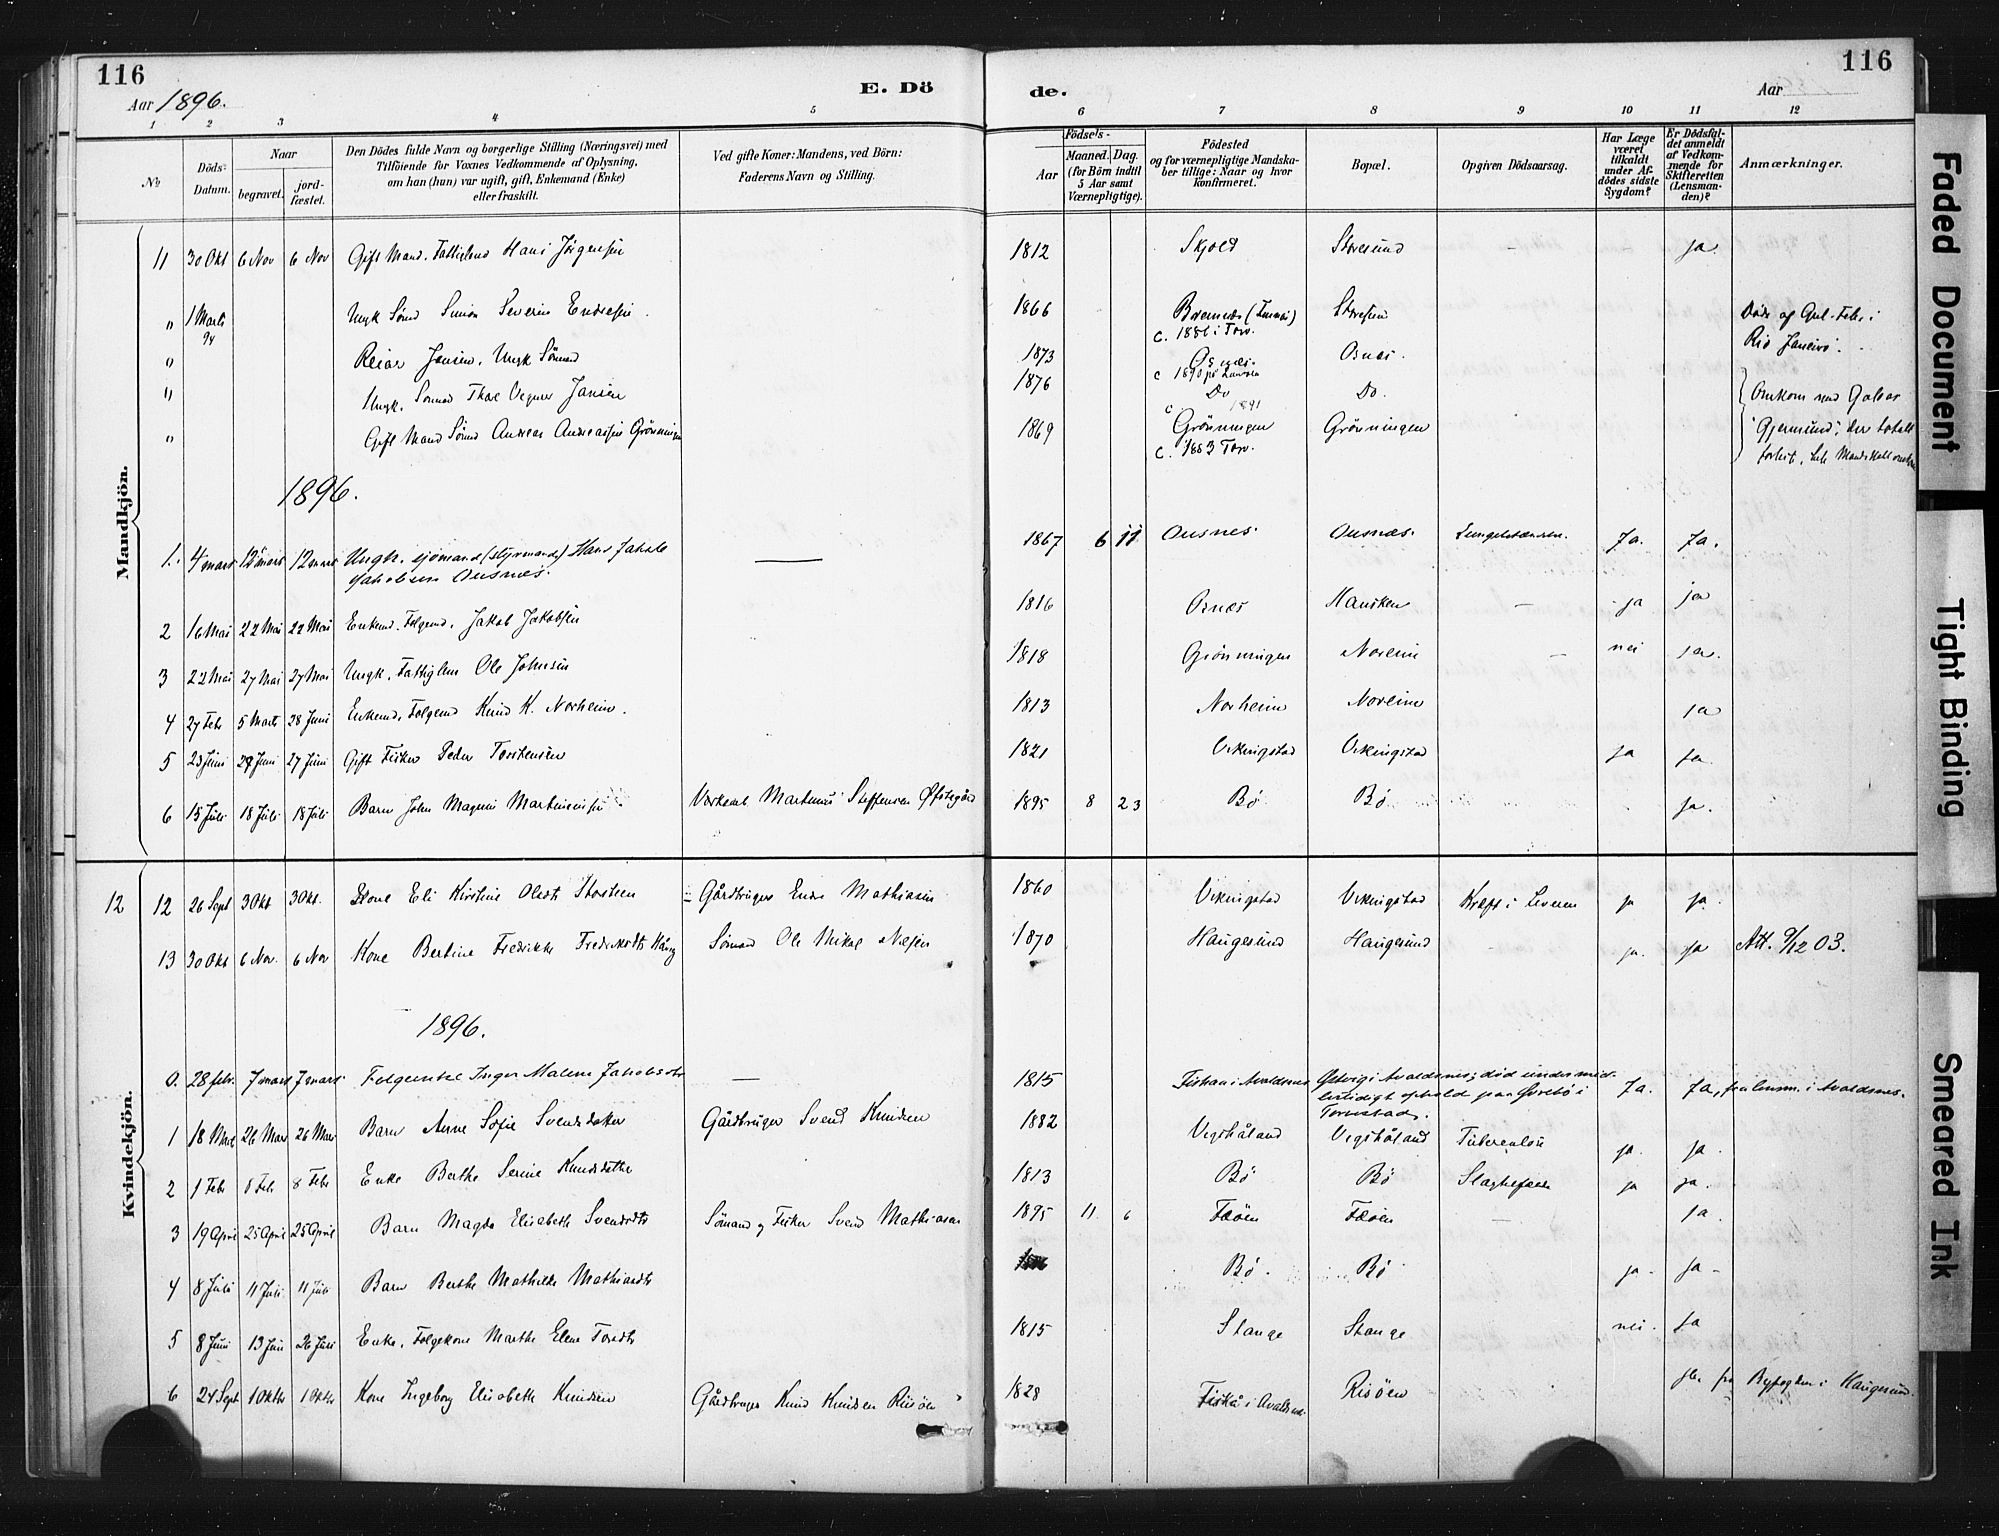 116
116
Aar 1896.
E. Dö
de.
Aar
1 2 3 4 5 6 7 8 9 10 11 12
No
Döds-
Datum.
Naar
begravet.
jord-
fæstet.
Den Dödes fulde Navn og borgerlige Stilling (Næringsvei) med
Tilföiende for Voxnes Vedkommende af Oplysning,
om han (hun) var ugift, gift, Enkemand (Enke)
eller fraskilt.
Ved gifte Koner: Mandens, ved Börn:
Faderens Navn og Stilling.
Födsels-
Aar
Maaned. Dag.
(for Börn indtil
5 Aar samt
Værnepligtige).
Födested
og for værnepligtige Mandska-
ber tillige: Naar og hvor
konfirmeret.
Bopæl.
Opgiven Dödsaarsag.
Har Læge
været
tilkaldt
under Af-
dödes sidste
Sygdom?
Er Dödsfal-
det anmeldt
af Vedkom-
mende for
Skifteretten
(Lensman-
den)?
Anmærkninger.
Mandkjön.
11 30 Okt 6 Nov 6 Nov Gift Mand. Fattiglem Hans Jørgensen 1812 Skjold Storesund - - ja.
" 1 Marts 94 Ungk Sømd Simon Severin Endresen. 1866 Bremnes c. 1886 i Torv. Storesun Døde af Gul-Feber i
Rio Janeiro.
" Reiar Jansen, Ungk Sømand 1873 Osnes. c 1890 Osnes.
" Ungk. Sømand Thore Jansen 1876 Do c 1891 Do. Omkom med Galeas
" Gift Mand Sømd Andreas Andreassen Grønningen 1869 Grønningen c. 1883 Torv. Grønningen "Gjermund", der totalt
forlist, hele Mandskabet omkom
1896.
1. 4 mars 12 mars 12 mars Ungk. sjømand (styrmand) Hans Jakob
Jakobsen Ousnes. — 1867 6 11 Ousnes. Ousnes. Ja. Ja.
2 16 Mai 22 Mai 22 Mai Enkemd. Folgemd. Jakob Jakobsen 1816 Osnes Hausken - ja ja
3 22 Mai 27 Mai 27 Mai Ungk. Fattiglem Ole Johnsen 1818 Grønningen Noreim - nei ja.
4 27 Febr 5 Marts 28 Juni Enkemd. Folgemd Knud K. Norheim. 1813 Norheim Noreim ja
5 23 Juni 27 Juni 27 Juni Gift Fisker Peder Torstensen 1821 Vikingstad Vikingstad ja ja
6 15 Juli 18 Juli 18 Juli Barn John Magnus Martinusen Martinus Steffensen 1895 8 23 Bø Bø ja.
Kvindekjön.
12 12 26 Sept 3 Okt 3 Okt. Kone Eli Kirstine Olsdt Gårdbruger Endre Mathiasen 1860 Vikingstad Vikingstad Kræft i Leveren ja ja.
13 30 Okt 6 Nov. 6 Nov Kone Bertine Fredrikke Fredriksdt Sømand Ole Mikal Nilsen 1870 Haugesund Haugesund - ja. ja Att. 9/12 03.
1896.
0. 28 febr. 7 mars 7 mars Folgeenke Inger Malene Jakobsdtr — 1815 Fiskaa i Avaldsnes Gitvig i Avaldsnes; død under mid-
lertidigt ophold paa Gvrebø i
Torvestad. Ja. Ja, fra lensm. i Avaldsnes.
1 18 Mar 26 Mar 26 Mar Barn Anne Sofie Svendsdatter Gårdbruger Svend Knudsen 1882 Vigshåland Vigshåland Tuberculose ja. ja.
2 1 Febr 8 Febr 8 Febr Enke Berthe Serine Knudsdatter 1813 Bø Bø ja ja.
3 19 April 25 April 25 April Barn Magda Elisabeth Svendsdtr Sømand og Fisker Svend Mathiasen 1895 11 6 Fæøen Fæøen - ja.
4 8 Juli 11 Juli 11 Juli Barn Berthe Mathilde Mathiasdtr Bø. Bø ja - ja -
5 8 Juni 13 Juni 26 Juli Enke. Folgekone Marthe Elene Toresdtr 1815 Stange Stange nei. ja
6 24 Sept 1 Oktbr 1 Oktbr Kone Ingeborg Elisabeth Knudsen Gårdbruger Knud Knudsen Risøen 1828 Fiskå i Avaldsnes. Risøen fra Byfogden i Haugesund.
Faded Document
Tight Binding
Smeared Ink